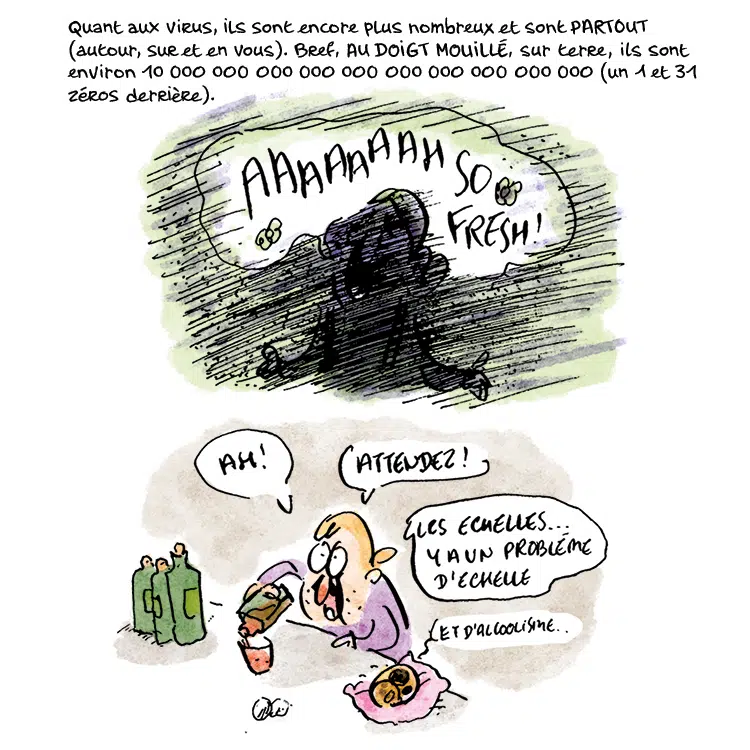 Quant aux virus, ils sont encore plus nombreux et sont PARTOUT
(autour, sur et en vous). Bref, AU DOIGT MOUILLÉ, sur terre, ils sont
environ 10 000 000 000 000 000 000 000 000 000 000 (un 1 et 31
zéros derrière).
AAAAAAAAH SO
FRESH!
AH!
ATTENDEZ!
LES ECHELLES...
Y A UN PROBLÉME
D'ECHELLE
ET D'ALCOOLISME..